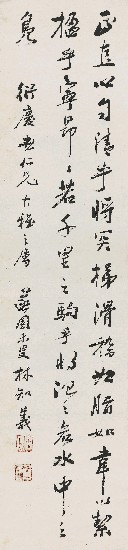 正直以自清乎將突梯滑稽如脂如韋以絜
楹乎寧昂〻若千里之駒乎將氾〻若水中之
鳧 衍慶世仁兄大雅之屬 蘇園叟林知義